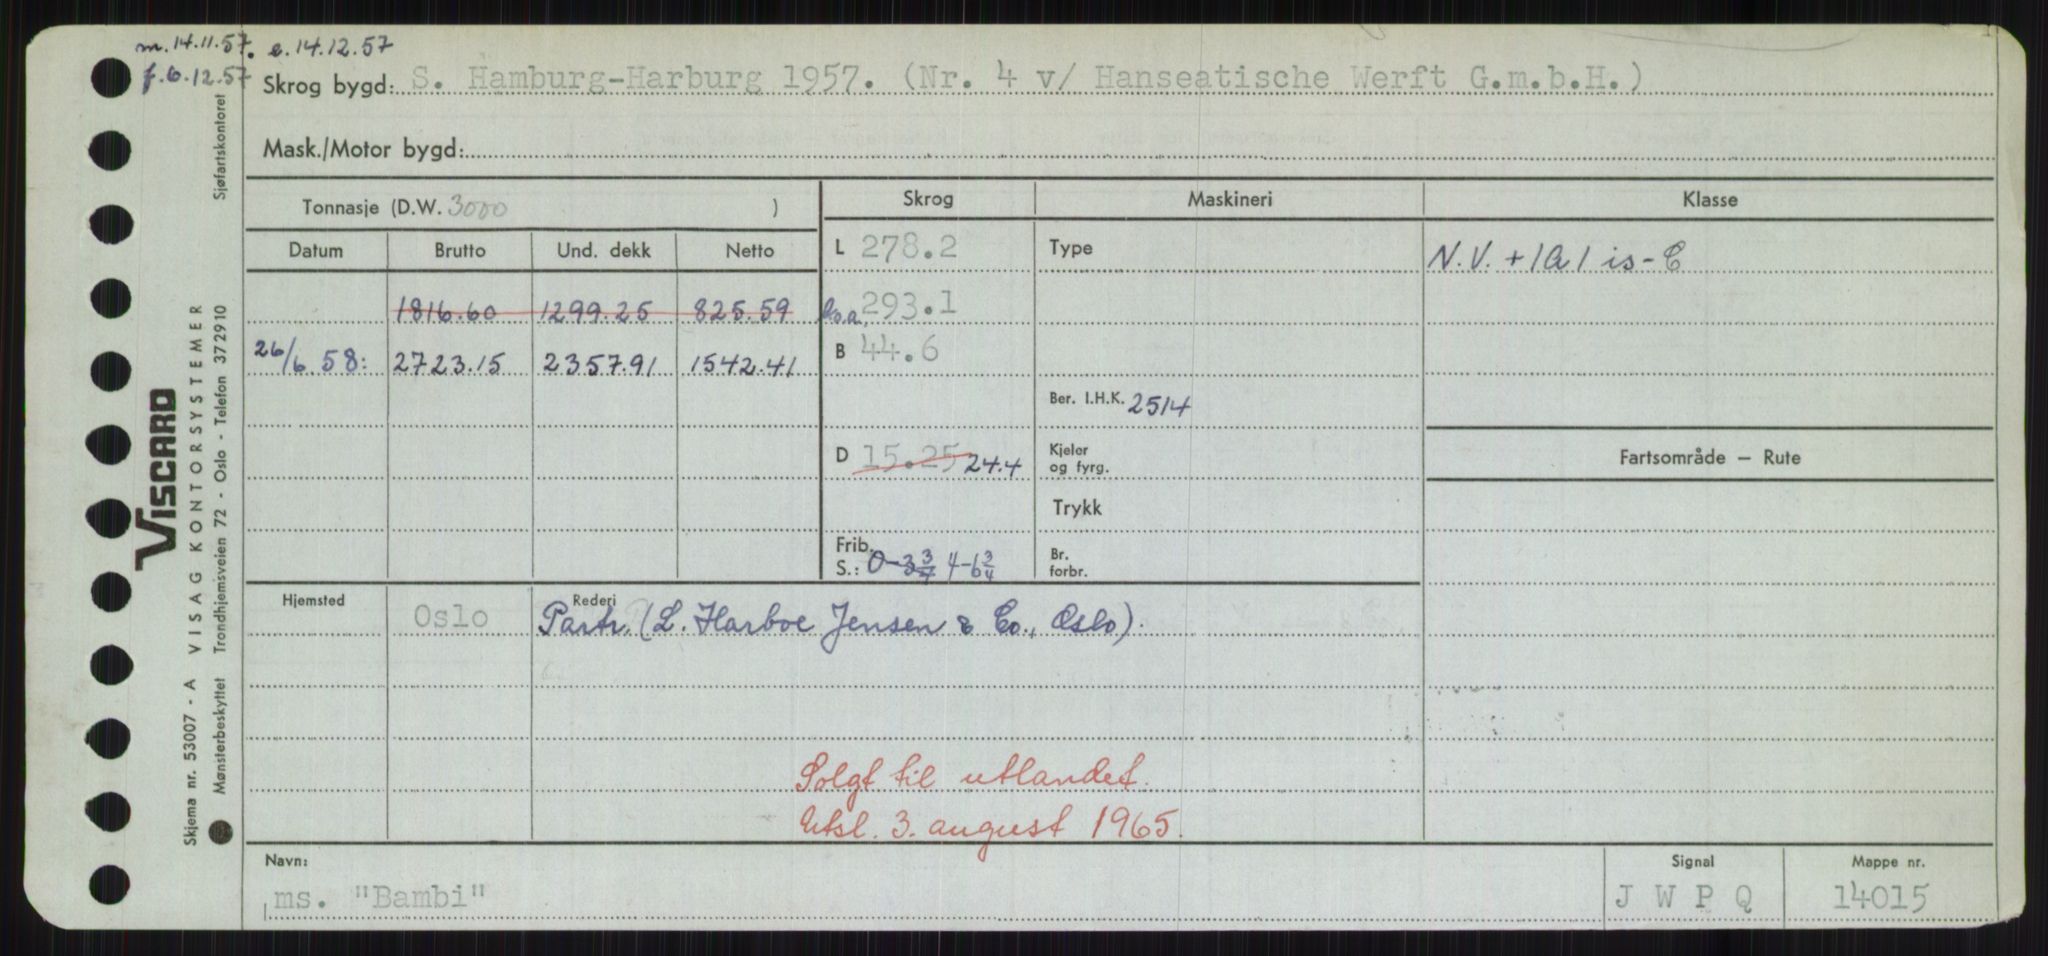 m. 14.11.57. e. 14.12.57
f. 6.12.57
Skrog bygd: S. Hamburg-Harburg 1957. (Nr. 4 v/ Hanseatische Werft G.m.b.H.)
Mask./Motor bygd:
Tonnasje (D.W. 3000 )
Skrog Maskineri Klasse
Datum Brutto Und. dekk Netto
L 278.2 Type N.V. + 1A1 is-C
1816.60 1299.25 825.59 l.o.a. 293.1
26/6 58: 2723.15 2357.91 1542.41 B 44.6
Ber. I.H.K. 2514
D 15.25 24.4 Kjeler
og fyrg.
Fartsområde — Rute
Trykk
Frib.
S.: 0-3 3/4 4-6 3/4 Br.
forbr.
Hjemsted Oslo Rederi
Partr. (L. Harboe Jensen & Co., Oslo).
Solgt til utlandet.
Utsl. 3. august 1965.
Navn: Signal Mappe nr.
ms. "Bambi" J W P Q 14015
Skjema nr. 53007 - A VISAG KONTORSYSTEMER
VISCARD
Mønsterbeskyttet Trondhjemsveien 72 - Oslo - Telefon 372910 Sjøfartskontoret